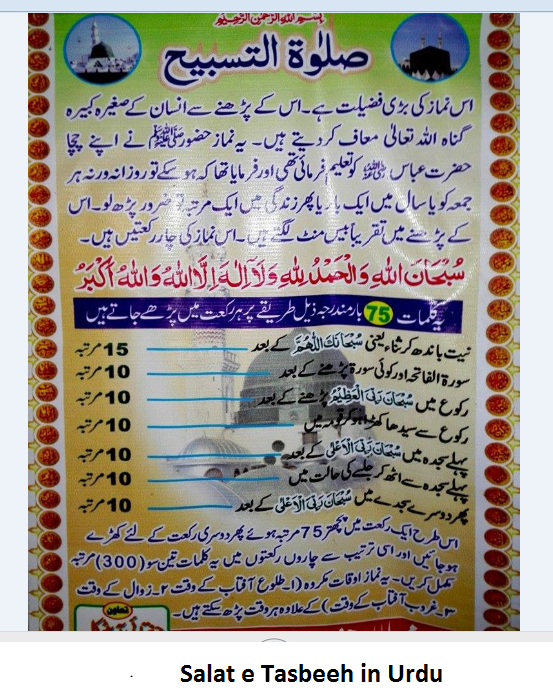 بِسْمِ اللهِ الرَّحْمٰنِ الرَّحِيْمِ
صلوٰة التسبيح
اس نماز کی بڑی فضیلت ہے۔ اس کے پڑھنے سے انسان کے صغیرہ کبیرہ
گناہ اللہ تعالیٰ معاف کردیتے ہیں۔ یہ نماز حضور ﷺ نے اپنے چچا
حضرت عباس کو تعلیم فرمائی تھی اور فرمایا تھا کہ ہو سکے تو روزانہ ورنہ ہر
جمعہ کو یا سال میں ایک بار یا پھر زندگی میں ایک مرتبہ ضرور پڑھ لو۔ اس
کے پڑھنے میں تقریباً بیس منٹ لگتے ہیں۔ اس نماز کی چار رکعتیں ہیں۔
سُبْحَانَ اللهِ وَالْحَمْدُ لِلّٰهِ وَلَآ اِلٰهَ اِلَّا اللهُ وَاللهُ اَكْبَرُ
یہ کلمات 75 بار مندرجہ ذیل طریقے پر ہر رکعت میں پڑھے جاتے ہیں
نیت باندھ کر ثناء یعنی سُبْحَانَكَ اللّٰهُمَّ کے بعد 15 مرتبہ
سورۃ الفاتحہ اور کوئی سورۃ پڑھنے کے بعد 10 مرتبہ
رکوع میں سُبْحَانَ رَبِّيَ الْعَظِيْمِ پڑھنے کے بعد 10 مرتبہ
رکوع سے سیدھا کھڑا ہو کر قومہ میں 10 مرتبہ
پہلے سجدہ میں سُبْحَانَ رَبِّيَ الْاَعْلٰى کے بعد 10 مرتبہ
پہلے سجدہ سے اٹھ کر جلسے کی حالت میں 10 مرتبہ
پھر دوسرے سجدے میں سُبْحَانَ رَبِّيَ الْاَعْلٰى کے بعد 10 مرتبہ
اس طرح ایک رکعت میں پچھتر 75 مرتبہ ہوئے پھر دوسری رکعت کے لئے کھڑے
ہو جائیں اور اسی ترتیب سے چاروں رکعتوں میں یہ کلمات تین سو (300) مرتبہ
مکمل کریں۔ یہ نماز اوقات مکروہ (۱۔ طلوع آفتاب کے وقت ۲۔ زوال کے وقت
۳۔ غروب آفتاب کے وقت) کے علاوہ ہر وقت پڑھ سکتے ہیں۔
تعاون
Salat e Tasbeeh in Urdu